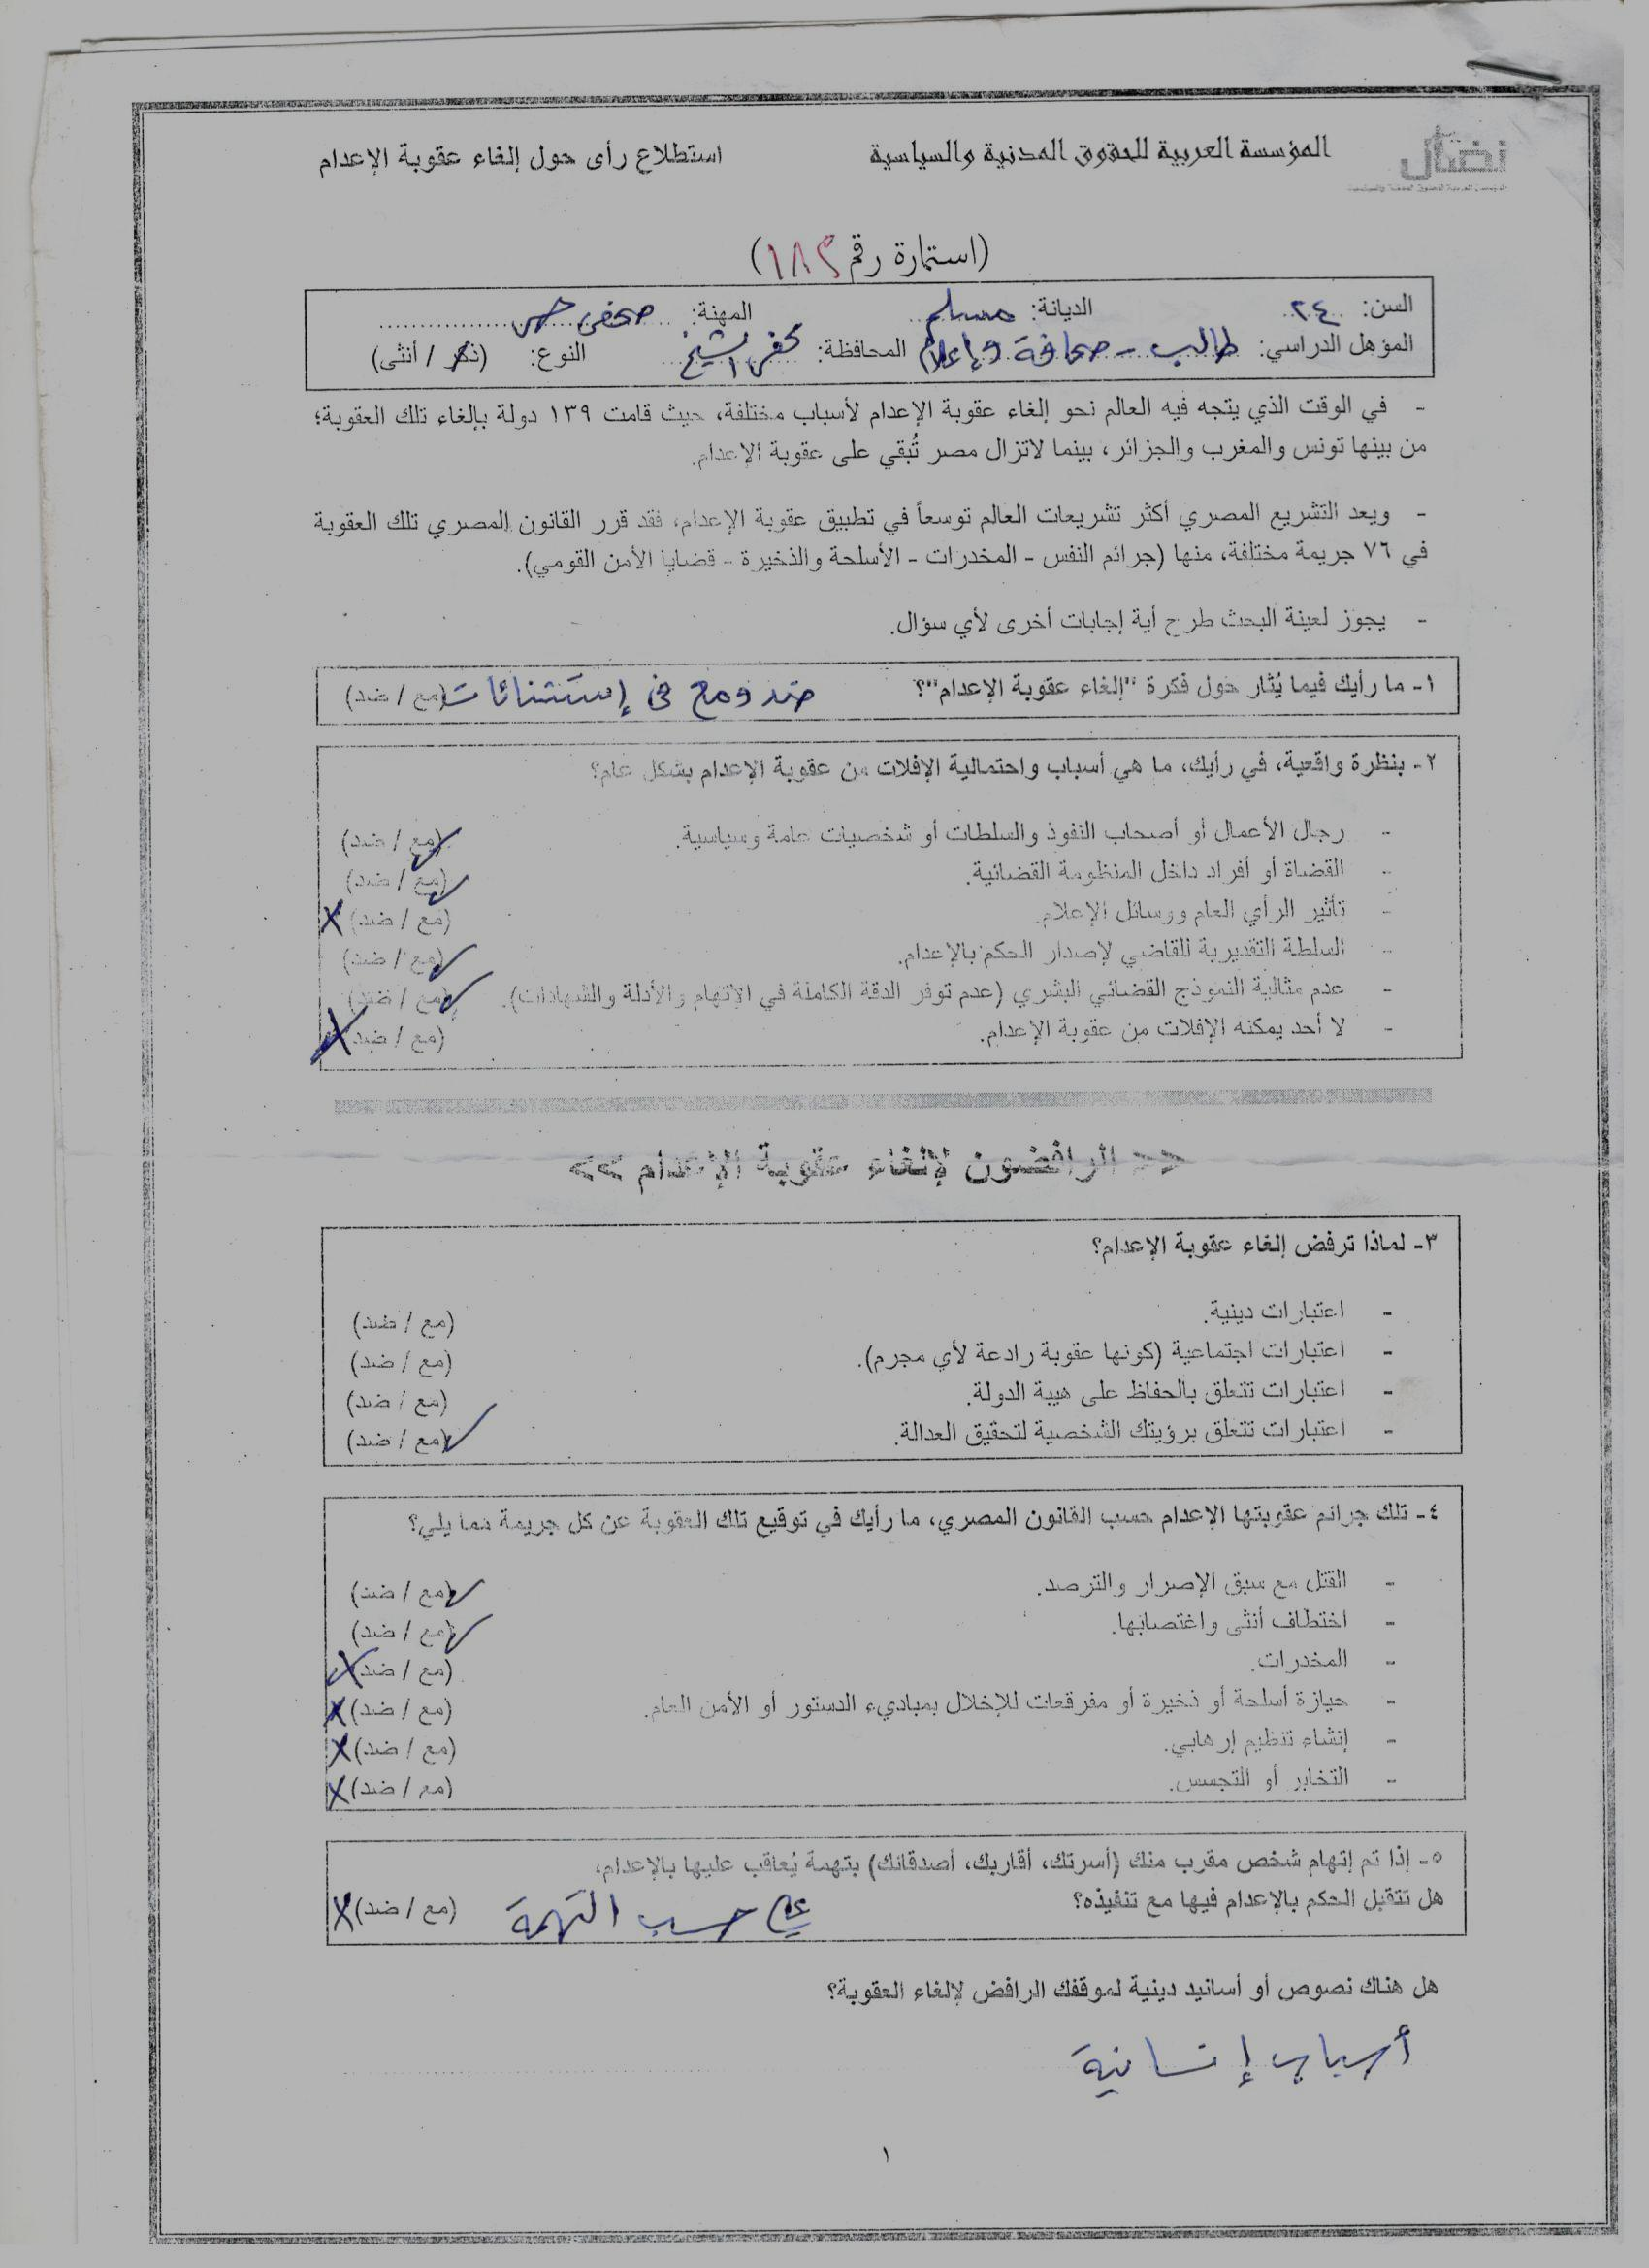 نضال
المؤسسة العربية للحقوق المدنية والسياسية
استطلاع رأى حول إلغاء عقوبة الإعدام
(استمارة رقم ١٨٢)
السن: ٢٤ الديانة: مسلم المهنة: صحفى حر
المؤهل الدراسي: طالب - صحافة وإعلام المحافظة: كفر الشيخ النوع: (ذكر / أنثى)
- في الوقت الذي يتجه فيه العالم نحو إلغاء عقوبة الإعدام لأسباب مختلفة، حيث قامت ١٣٩ دولة بإلغاء تلك العقوبة؛
من بينها تونس والمغرب والجزائر، بينما لاتزال مصر تُبقي على عقوبة الإعدام.
- ويعد التشريع المصري أكثر تشريعات العالم توسعاً في تطبيق عقوبة الإعدام، فقد قرر القانون المصري تلك العقوبة
في ٧٦ جريمة مختلفة، منها (جرائم النفس - المخدرات - الأسلحة والذخيرة - قضايا الأمن القومي).
- يجوز لعينة البحث طرح أية إجابات أخرى لأي سؤال.
١- ما رأيك فيما يُثار حول فكرة "إلغاء عقوبة الإعدام"؟ ضد ومع فى إستثنائات (مع / ضد)
٢- بنظرة واقعية، في رأيك، ما هي أسباب واحتمالية الإفلات من عقوبة الإعدام بشكل عام؟
- رجال الأعمال أو أصحاب النفوذ والسلطات أو شخصيات عامة وسياسية. (مع / ضد)
- القضاة أو أفراد داخل المنظومة القضائية. (مع / ضد)
- تأثير الرأي العام ووسائل الإعلام. (مع / ضد)
- السلطة التقديرية للقاضي لإصدار الحكم بالإعدام. (مع / ضد)
- عدم مثالية النموذج القضائي البشري (عدم توفر الدقة الكاملة في الإتهام والأدلة والشهادات). (مع / ضد)
- لا أحد يمكنه الإفلات من عقوبة الإعدام. (مع / ضد)
<< الرافضون لإلغاء عقوبة الإعدام >>
٣- لماذا ترفض إلغاء عقوبة الإعدام؟
- اعتبارات دينية. (مع / ضد)
- اعتبارات اجتماعية (كونها عقوبة رادعة لأي مجرم). (مع / ضد)
- اعتبارات تتعلق بالحفاظ على هيبة الدولة. (مع / ضد)
- اعتبارات تتعلق برؤيتك الشخصية لتحقيق العدالة. (مع / ضد)
٤- تلك جرائم عقوبتها الإعدام حسب القانون المصري، ما رأيك في توقيع تلك العقوبة عن كل جريمة مما يلي؟
- القتل مع سبق الإصرار والترصد. (مع / ضد)
- اختطاف أنثى واغتصابها. (مع / ضد)
- المخدرات. (مع / ضد)
- حيازة أسلحة أو ذخيرة أو مفرقعات للإخلال بمباديء الدستور أو الأمن العام. (مع / ضد)
- إنشاء تنظيم إرهابي. (مع / ضد)
- التخابر أو التجسس. (مع / ضد)
٥- إذا تم إتهام شخص مقرب منك (أسرتك، أقاربك، أصدقائك) بتهمة يُعاقب عليها بالإعدام،
هل تتقبل الحكم بالإعدام فيها مع تنفيذه؟ على حسب التهمة (مع / ضد)
هل هناك نصوص أو أسانيد دينية لموقفك الرافض لإلغاء العقوبة؟
أسباب إنسانية
١